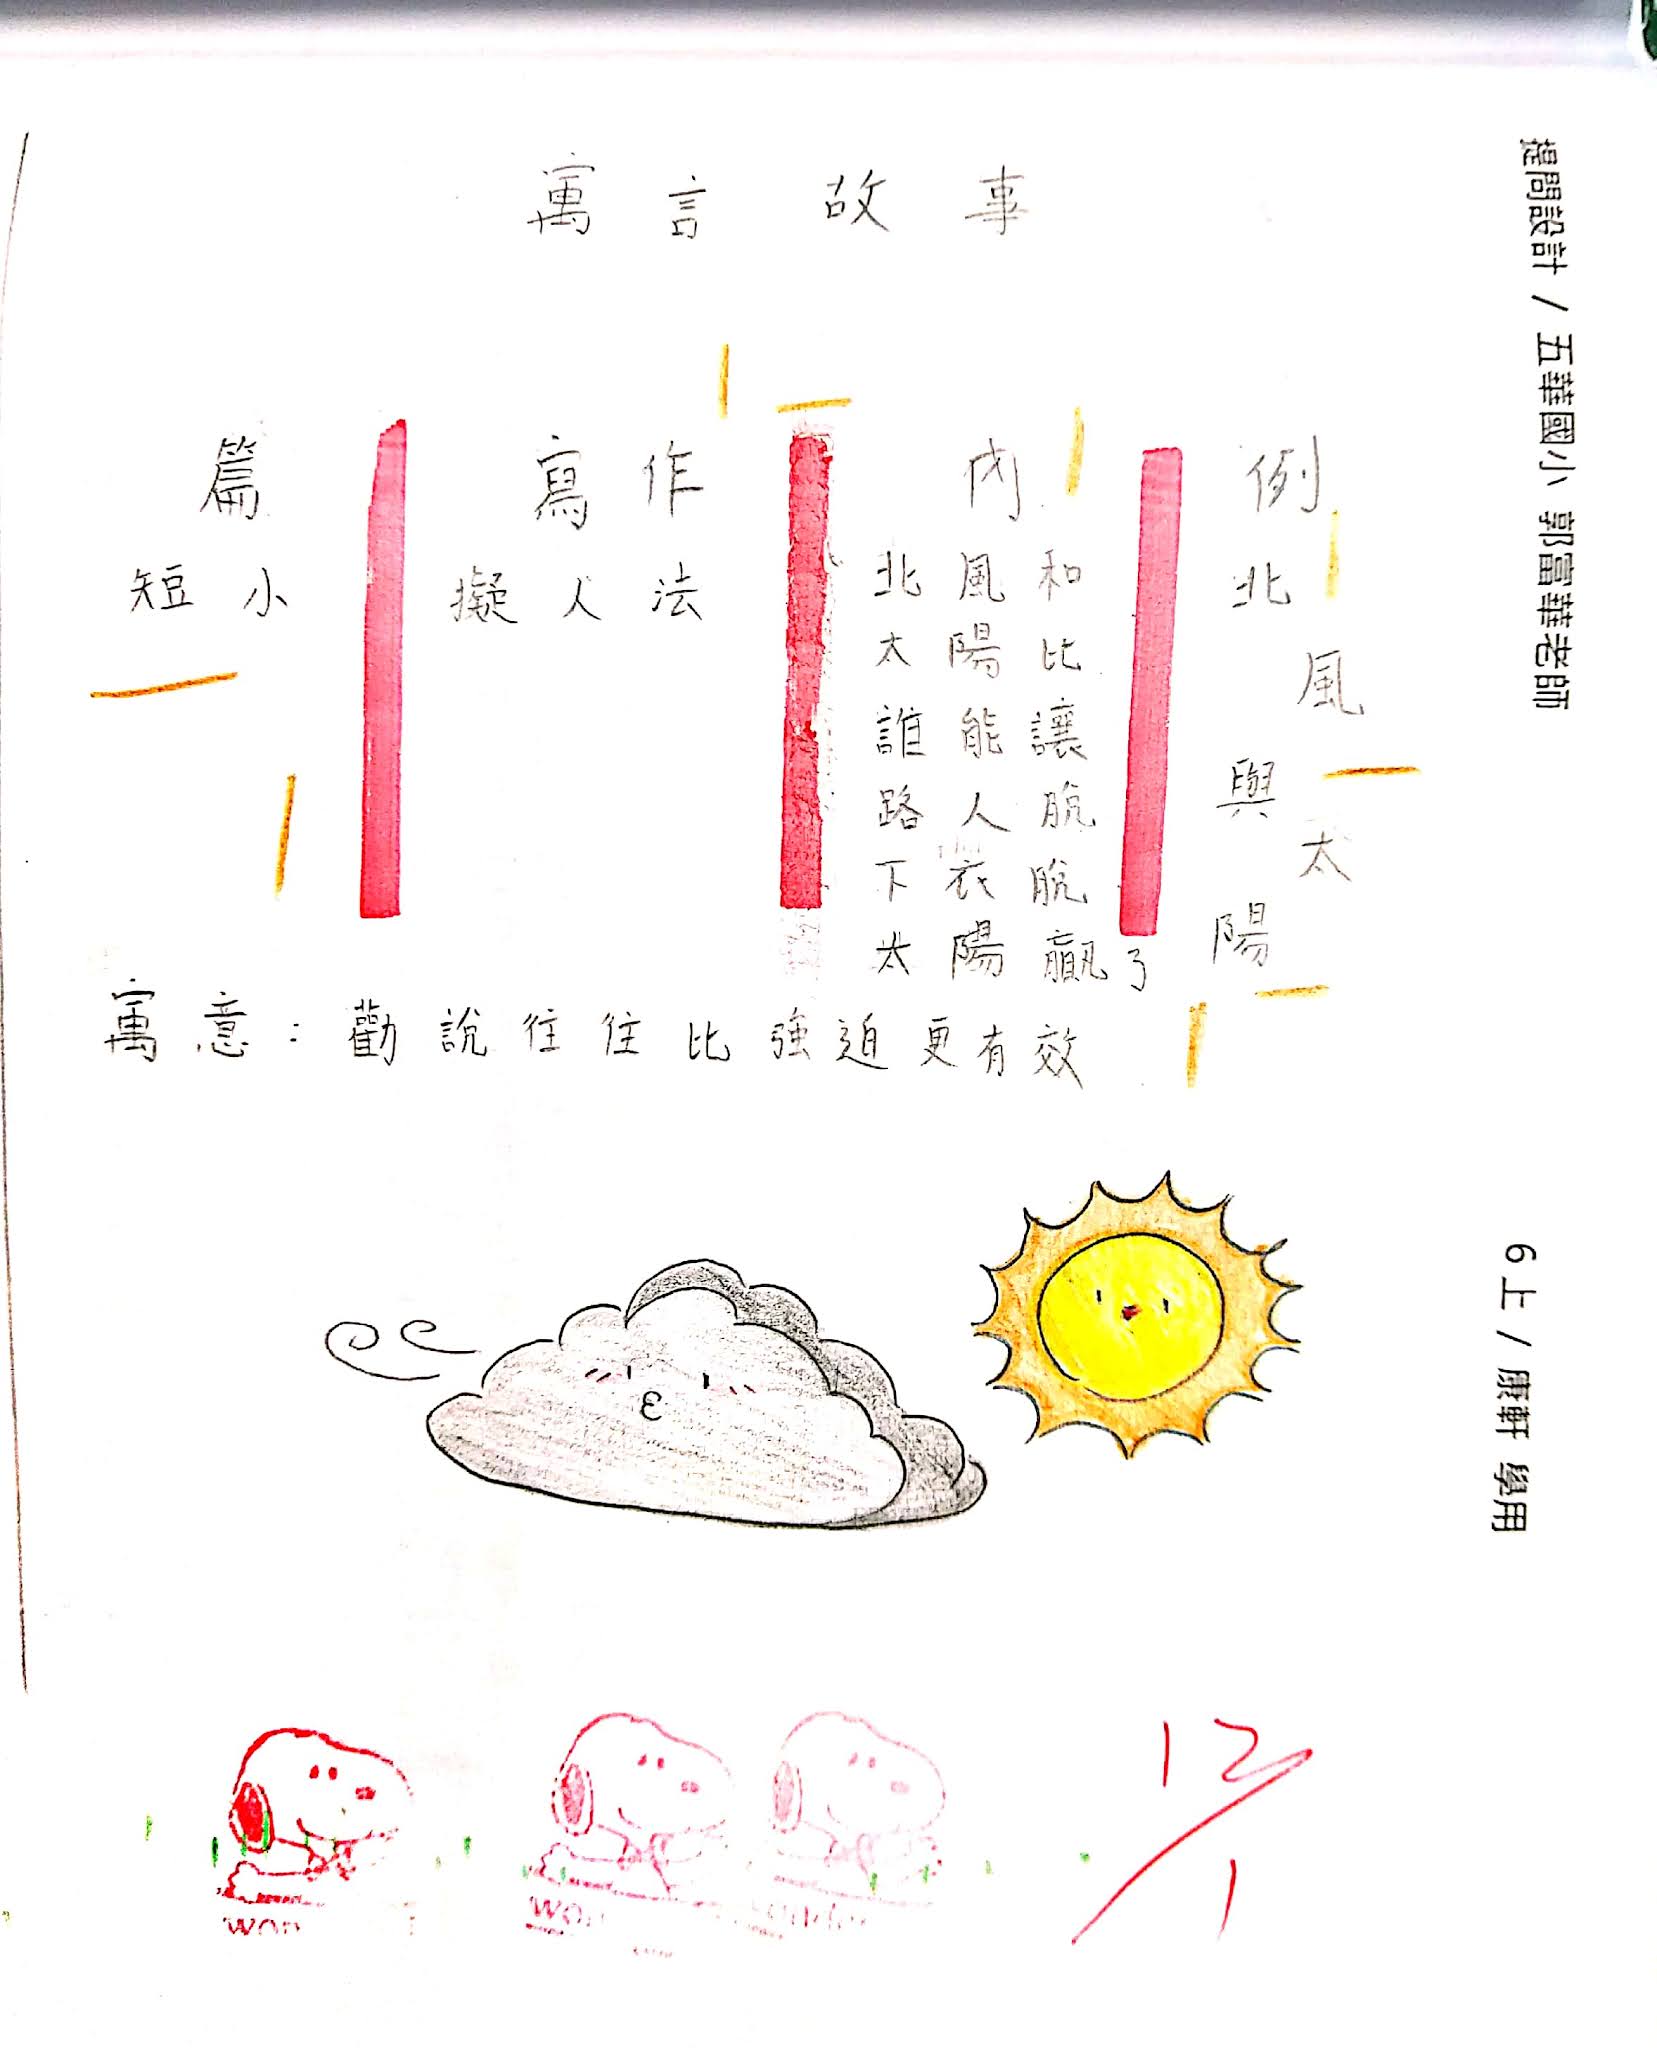 寓言故事
篇
短小
寫作
擬人法
內
北風和
太陽比
誰能讓
路人脫
下衣脫
太陽贏了
例
北風與太陽
寓意：勸說往往比強迫更有效
提問設計 / 五華國小 郭富華老師
6上 / 康軒 學用
12/1